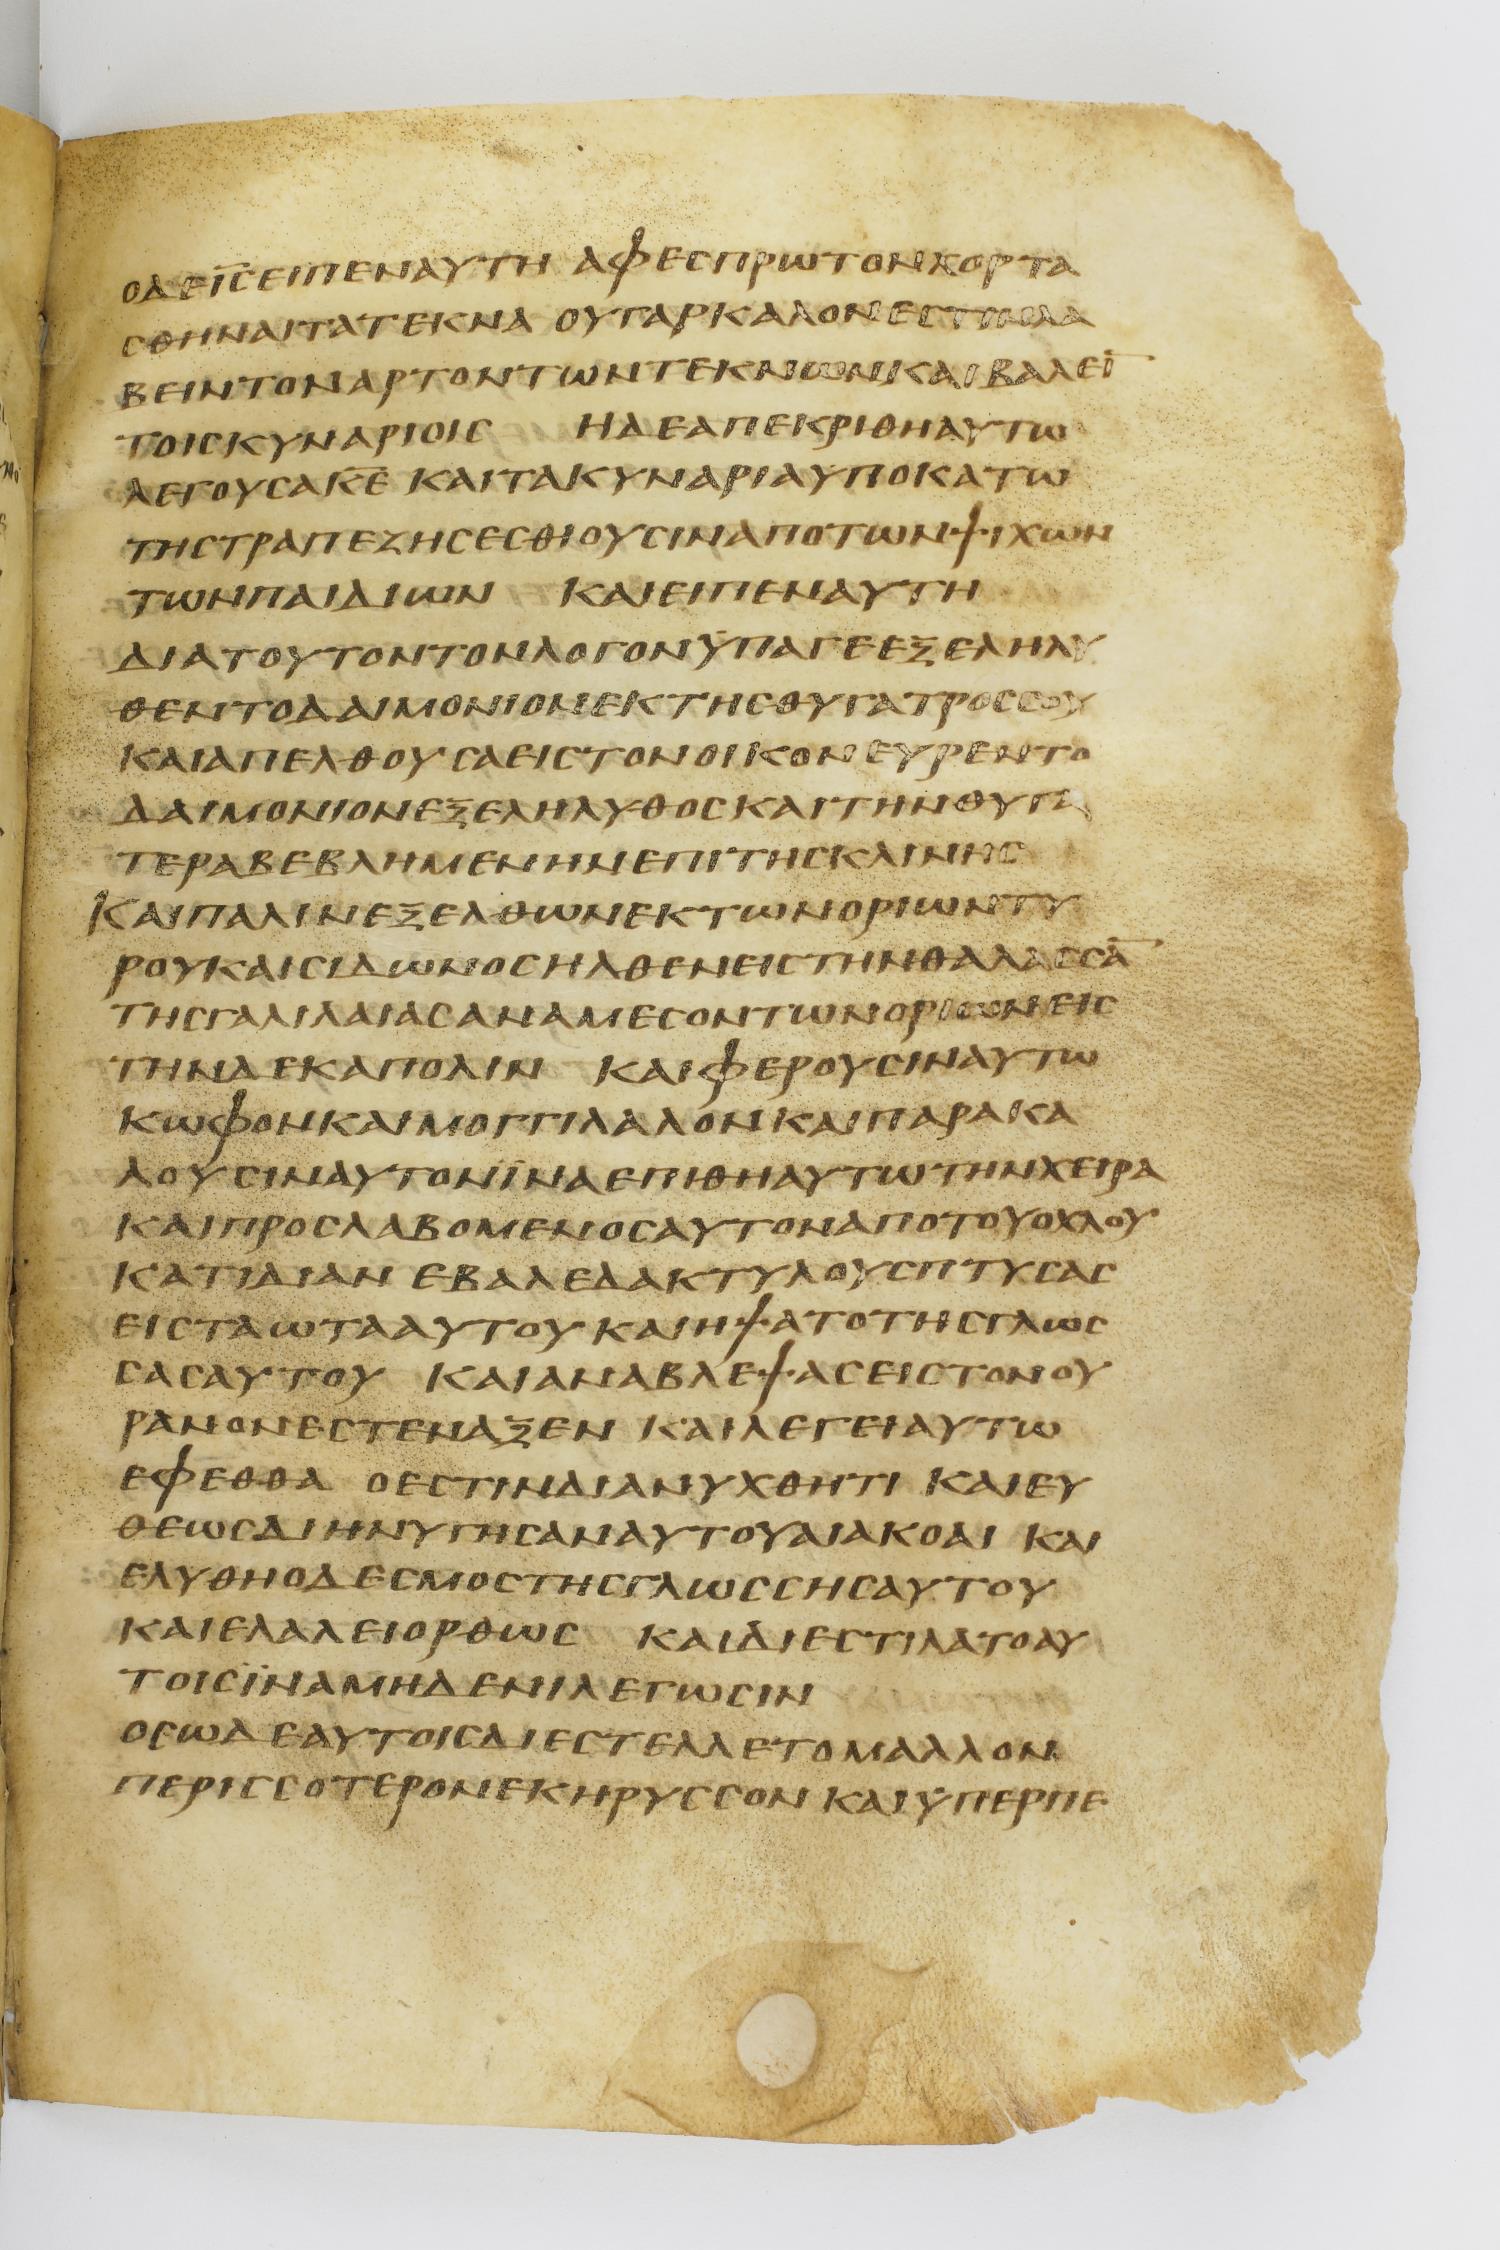 ο δε ι̅ς̅ ειπεν αυτη αφες πρωτον χορτα
σθηναι τα τεκνα ου γαρ καλον εστιν λα
βειν τον αρτον των τεκνων και βαλει̅
τοις κυναριοις Η δε απεκριθη αυτω
λεγουσα κ̅ε̅ και τα κυναρια υποκατω
της τραπεζης εσθιουσιν απο των ψιχων
των παιδιων και ειπεν αυτη
δια τουτον τον λογον ϋπαγε εξεληλυ
θεν το δαιμονιον εκ της θυγατρος σου
και απελθουσα εις τον οικον ευρεν το
δαιμονιον εξεληλυθος και την θυγα
τερα βεβλημενην επι της κλινης
Και παλιν εξελθων εκ των οριων τυ
ρου και σιδωνος ηλθεν εις την θαλασσα̅
της γαλιλαιας ανα μεσον των οριων εις
την δεκαπολιν και φερουσιν αυτω
κωφον και μογγιλαλον και παρακα
λουσιν αυτον ϊνα επιθη αυτω την χειρα
και προσλαβομενος αυτον απο του οχλου
κατ ιδιαν εβαλε δακτυλους πτυσας
εις τα ωτα αυτου και ηψατο της γλωσ
σας αυτου και αναβλεψας εις τον ου
ρανον εστεναξεν και λεγει αυτω
εφεθθα ο εστιν διανυχθητι και ευ
θεως διηνυγησαν αυτου αι ακοαι και
ελυθη ο δεσμος της γλωσσης αυτου
και ελαλει ορθως και διεστιλατο αυ
τοις ϊνα μηδενι λεγωσιν
οσω δε αυτοις διεστελλετο μαλλον
περισσοτερον εκηρυσσον και ϋπερπε